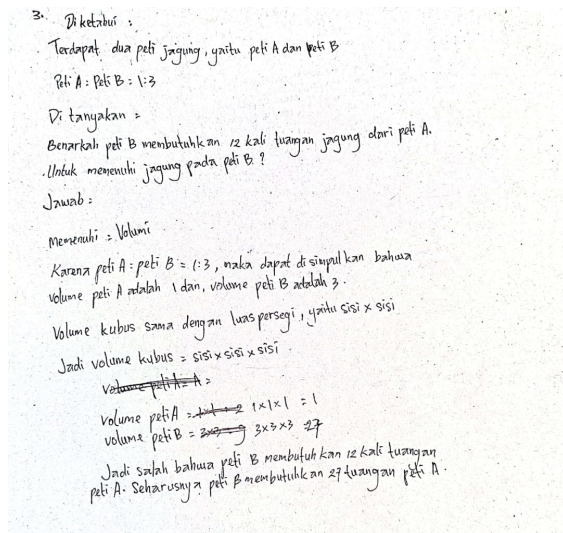 3. Diketahui :
Terdapat dua peti jagung, yaitu peti A dan peti B
Peti A : Peti B = 1:3
Ditanyakan =
Benarkah peti B membutuhkan 12 kali tuangan jagung dari peti A.
Untuk memenuhi jagung pada peti B. ?
Jawab :
Memenuhi = Volumi
Karena peti A : peti B = 1:3, maka dapat disimpulkan bahwa
volume peti A adalah 1 dan, volume peti B adalah 3.
Volume kubus sama dengan luas persegi, yaitu sisi x sisi
Jadi volume kubus = sisi x sisi x sisi
volume peti A =
volume peti A = 1x1x1 = 1
volume peti B = 3x3x3 27
Jadi salah bahwa peti B membutuhkan 12 kali tuangan
peti A. Seharusnya peti B membutuhkan 27 tuangan peti A.